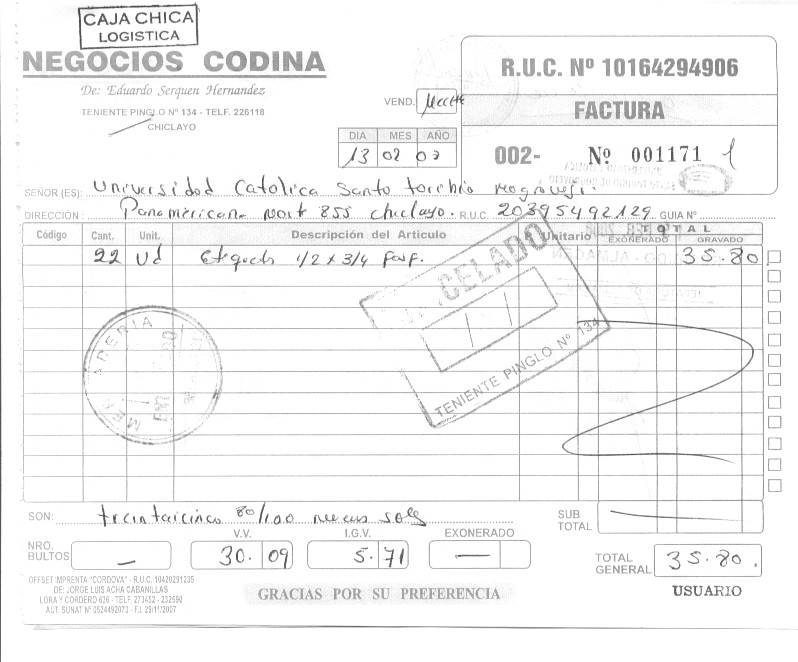 CAJA CHICA
LOGISTICA
NEGOCIOS CODINA
De: Eduardo Serquen Hernandez
TENIENTE PINGLO Nº 134 - TELF. 226118
CHICLAYO
VEND.
R.U.C. Nº 10164294906
FACTURA
002- Nº 001171
DIA MES AÑO
13 02 07
SEÑOR (ES): Universidad Catolica Santo Toribio
DIRECCIÓN: Panamericana Norte 855 Chiclayo. R.U.C. 20395492129 GUIA Nº
Código Cant. Unit. Descripción del Artículo P. Unitario TOTAL
EXONERADO GRAVADO
22 Ud 1/2 x 3/4 35.80
CANCELADO
TENIENTE PINGLO Nº 134
SON: treintaicinco 80/100 nuevos soles
SUB TOTAL
V.V. I.G.V. EXONERADO
NRO. BULTOS — 30.09 5.71 —
TOTAL GENERAL 35.80.
OFFSET IMPRENTA "CORDOVA" - R.U.C. 10420291235
DE: JORGE LUIS ACHA CABANILLAS
LORA Y CORDERO 636 - TELF. 273452 - 232590
AUT. SUNAT Nº 0524492073 - F.I. 29/11/2007
GRACIAS POR SU PREFERENCIA
USUARIO